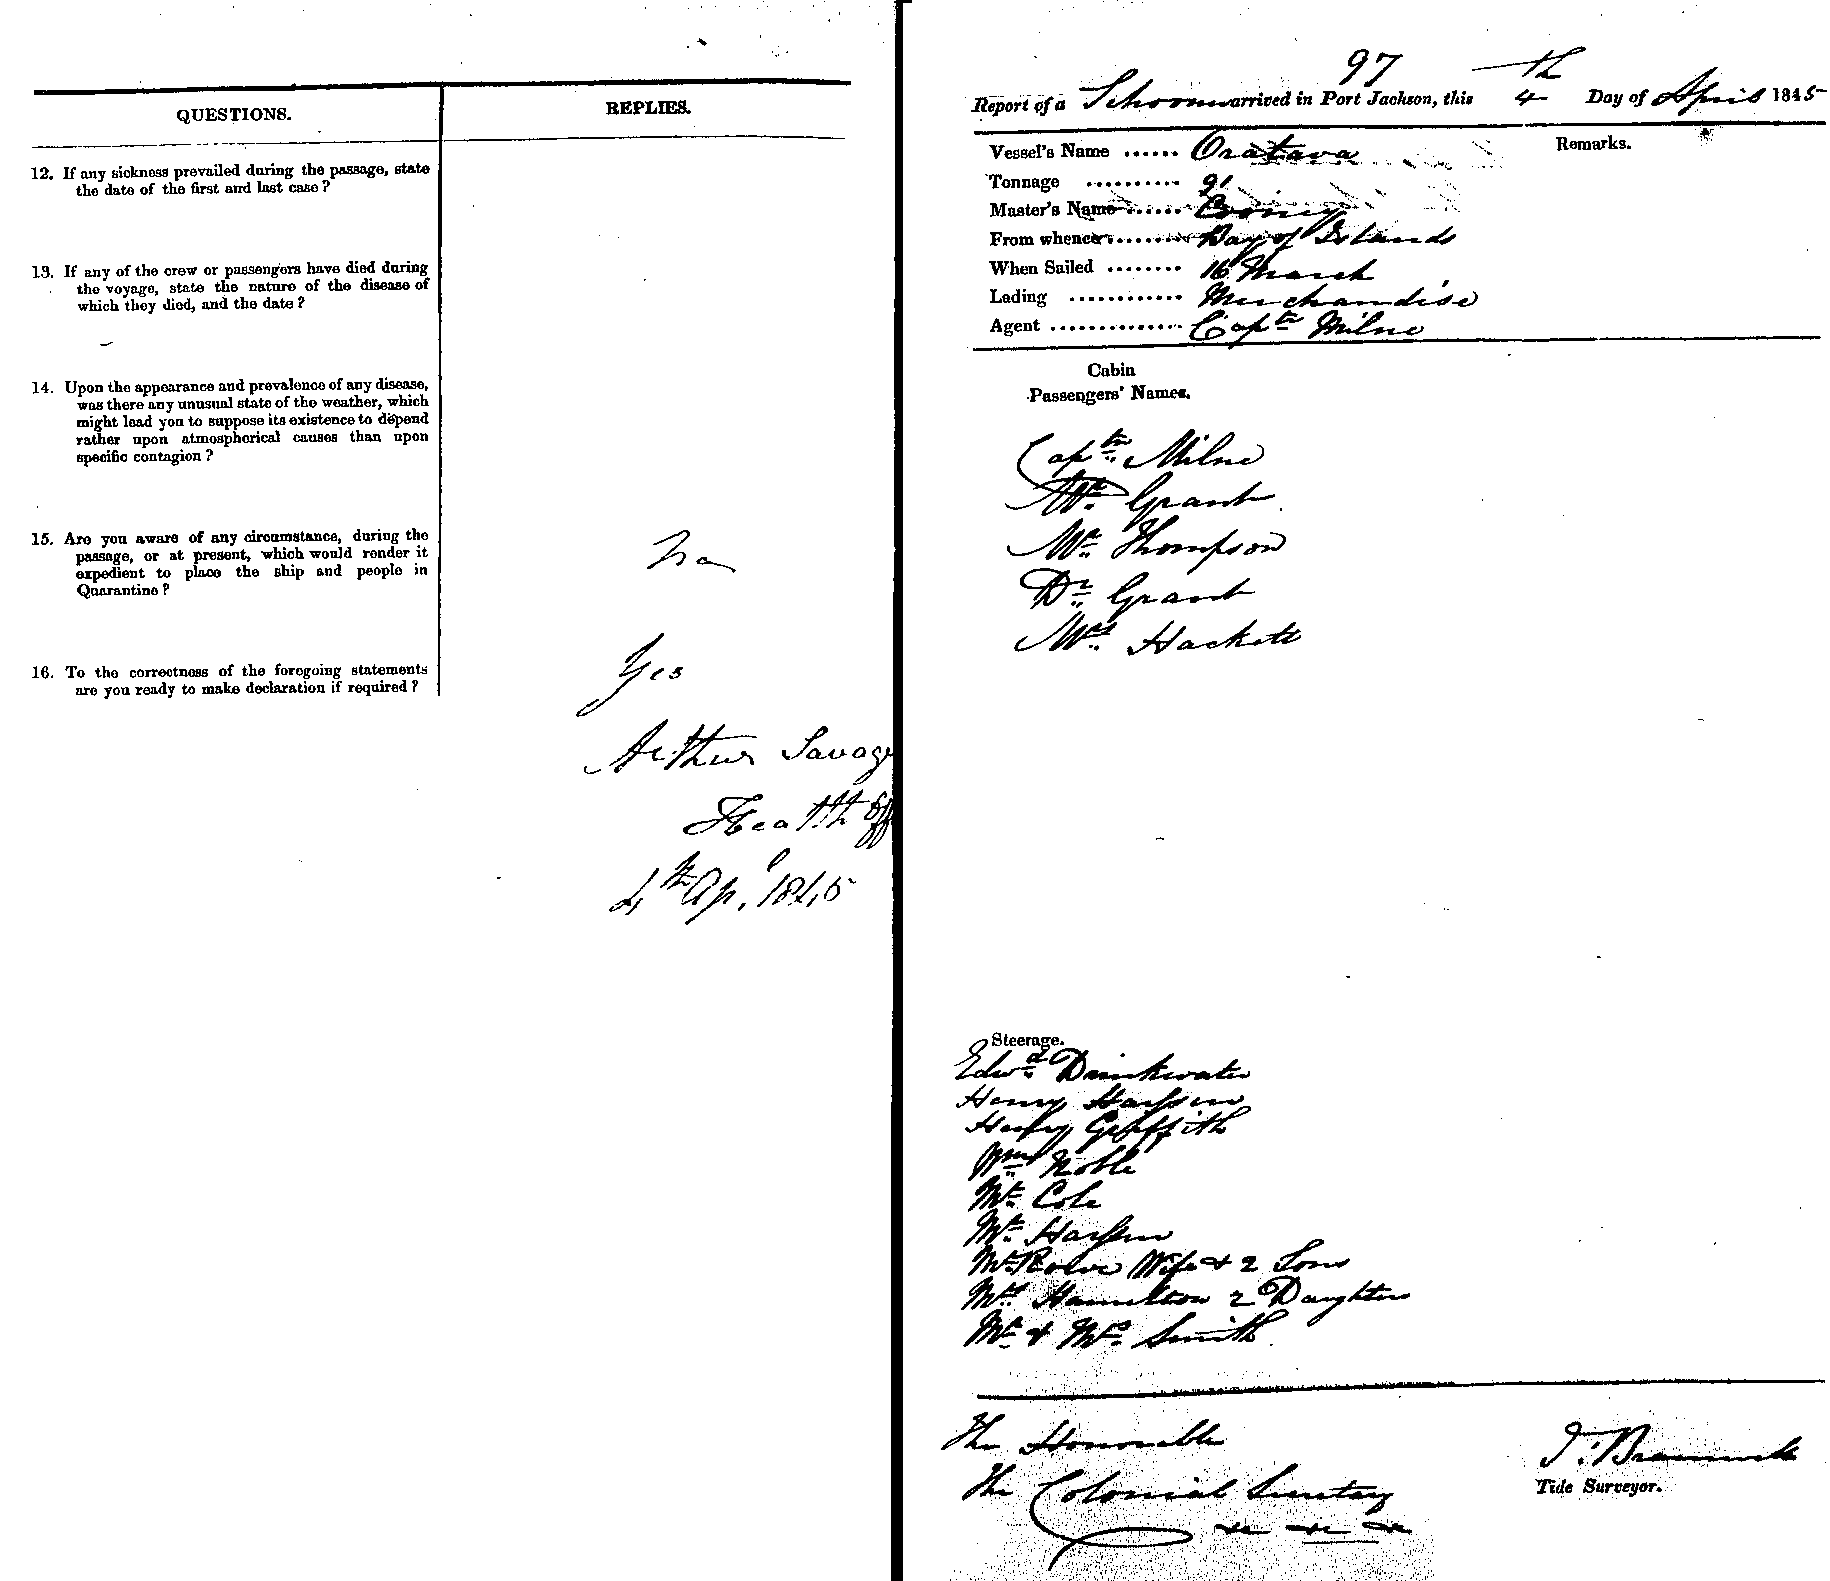 QUESTIONS.
REPLIES.
12. If any sickness prevailed during the passage, state
the date of the first and last case?
13. If any of the crew or passengers have died during
the voyage, state the nature of the disease of
which they died, and the date?
14. Upon the appearance and prevalence of any disease,
was there any unusual state of the weather, which
might lead you to suppose its existence to depend
rather upon atmospherical causes than upon
specific contagion?
15. Are you aware of any circumstance, during the
passage, or at present, which would render it
expedient to place the ship and people in
Quarantine?
No
16. To the correctness of the foregoing statements
are you ready to make declaration if required?
Yes
Arthur Savage
Health Off
4th Apl 1845
97
Report of a Schooner arrived in Port Jackson, this 4th Day of April 1845
Remarks.
Vessel's Name ...... Oratava
Tonnage .......... 91
Master's Name ......
From whence ........ Bay of Islands
When Sailed ........ 16 March
Lading ............ Merchandise
Agent .............. Captn Milne
Cabin
Passengers' Names.
Captn Milne
Mr. Grant
Mr. Thompson
Dr. Grant
Hackett
Steerage.
Edwd Drinkwater
Henry
Henry Griffith
Wm Noble
Mr. Cole
Mr.
Mr Rowe Wife & 2 Sons
Mrs Hamilton 2 Daughters
Mr. & Mrs. Smith
The Honorable
The Colonial Secretary
&c &c &c
Tide Surveyor.